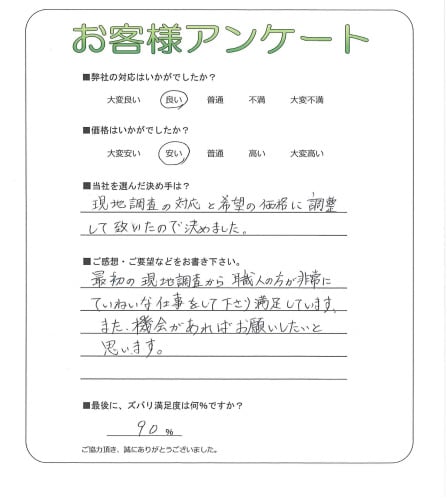 お客様アンケート
■弊社の対応はいかがでしたか?
大変良い 良い 普通 不満 大変不満
■価格はいかがでしたか?
大変安い 安い 普通 高い 大変高い
■当社を選んだ決め手は?
現地調査の対応と希望の価格に調整
して致いたので決めました。
■ご感想・ご要望などをお書き下さい。
最初の現地調査から職人の方が非常に
ていねいな仕事をして下さり満足しています、
また、機会があればお願いしたいと
思います。
■最後に、ズバリ満足度は何%ですか?
90 %
ご協力頂き、誠にありがとうございました。